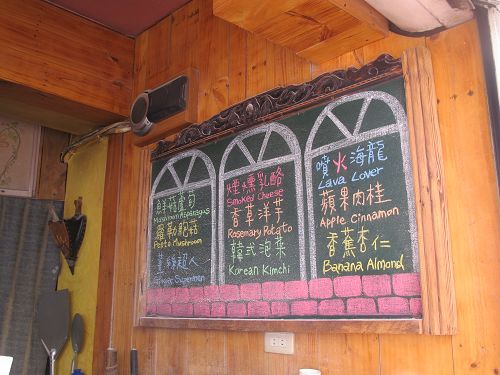 鮮菇蘆筍
Mushroom Asparagus
羅勒鮑菇
Pesto Mushroom
超人
Superman
煙燻乳酪
Smoked Cheese
香草洋芋
Rosemary Potato
韓式泡菜
Korean Kimchi
噴火海龍
Lava Lover
蘋果肉桂
Apple Cinnamon
香蕉杏仁
Banana Almond